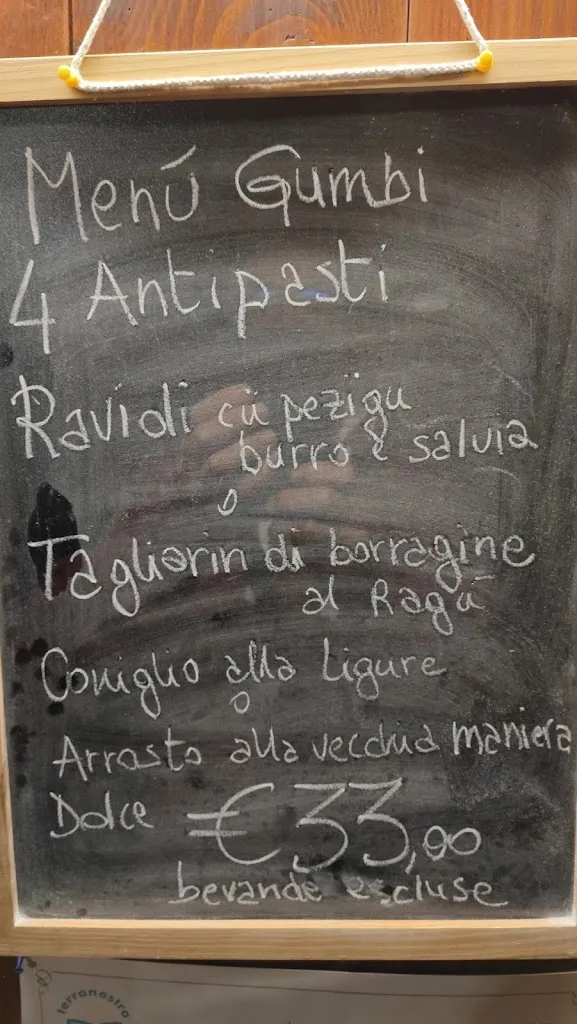 Menú Gumbi
4 Antipasti
Ravioli cu pezigu
burro e salvia
o
Tagliarin di borragine
al Ragù
Coniglio alla Ligure
o
Arrosto alla vecchia maniera
Dolce €33,00
bevande escluse
terranostra